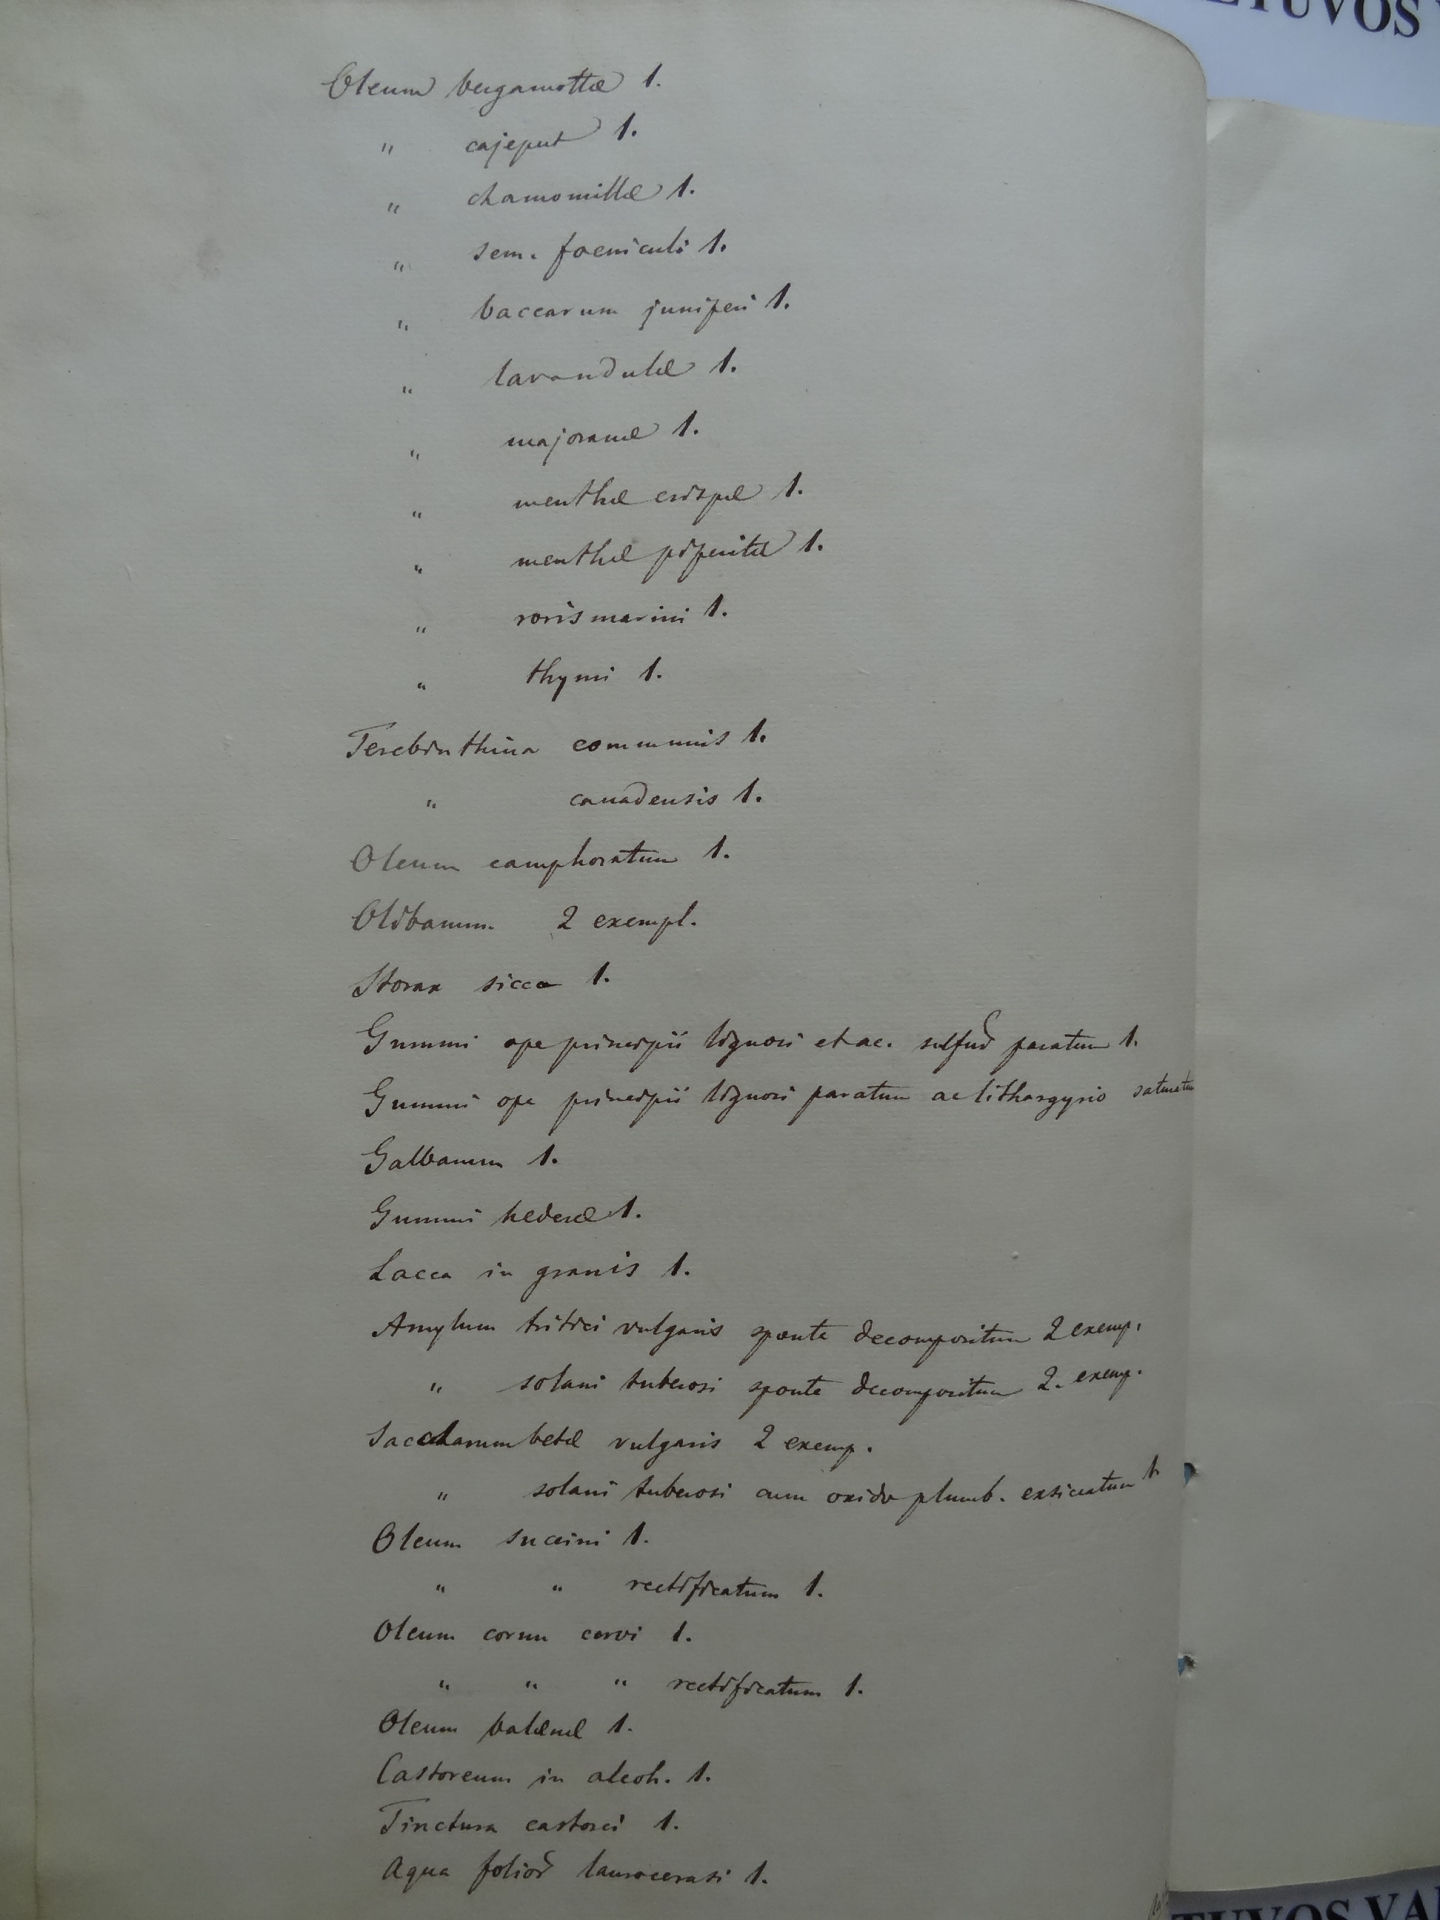 Oleum bergamottæ 1.
" cajeput 1.
" chamomillæ 1.
" sem. foeniculi 1.
" baccarum juniperi 1.
" lavandulæ 1.
" majoranæ 1.
" menthæ crispæ 1.
" menthæ piperitæ 1.
" rorismarini 1.
" thymi 1.
Terebinthina communis 1.
" canadensis 1.
Oleum camphoratum 1.
Olibanum 2 exempl.
Storax sicca 1.
Gummi ope principii lignosi et ac. sulfur paratum 1.
Gummi ope principii lignosi paratum ac lithargyrio saturatum
Galbanum 1.
Gummi hederæ 1.
Lacca in granis 1.
Amylum tritici vulgaris sponte decompositum 2 exemp.
" solani tuberosi sponte decompositum 2. exemp.
Saccharum betæ vulgaris 2 exemp.
" solani tuberosi cum oxido plumb. exsiccatum 1.
Oleum succini 1.
" " rectificatum 1.
Oleum cornu cervi 1.
" " " rectificatum 1.
Oleum balænæ 1.
Castoreum in alcoh. 1.
Tinctura castorei 1.
Aqua folior laurocerasi 1.
TUVOS
TUVOS VAL